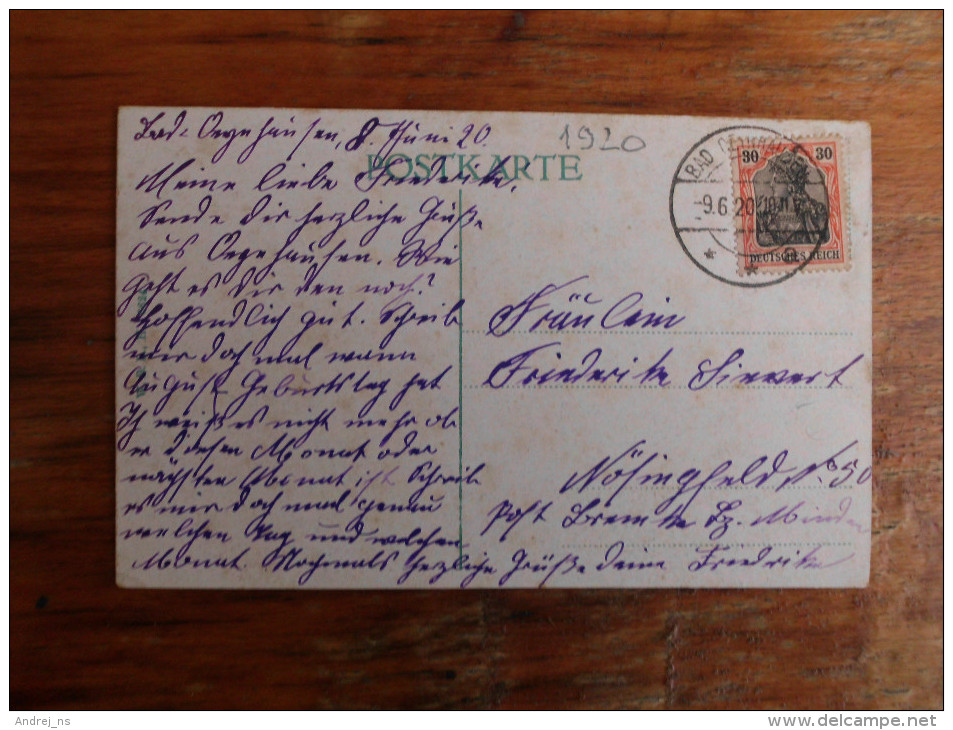 Bad-Oeynhausen, 8. Juni 20.
1920
POSTKARTE
BAD OEYNHAUSEN
-9.6.20.
30 30
DEUTSCHES REICH
Meine liebe Friederike,
Sende dir herzliche Grüße
aus Oeynhausen. Wie
geht es dir den noch?
Hoffendlich gut. Schreib
mir doch mal wann
August Geburtstag hat
Ich weiß es nicht mehr ob
er diesen Monat oder
nächsten Monat ist Schreib
es mir doch mal genau
welchen Tag und welchen
Monat. Nochmals herzliche Grüße deine Friederike
Fräulein
Friederike Sievert
Nösingfeld No. 50
Post Bremke Bz. Minden
Andrej_ns
www.delcampe.net